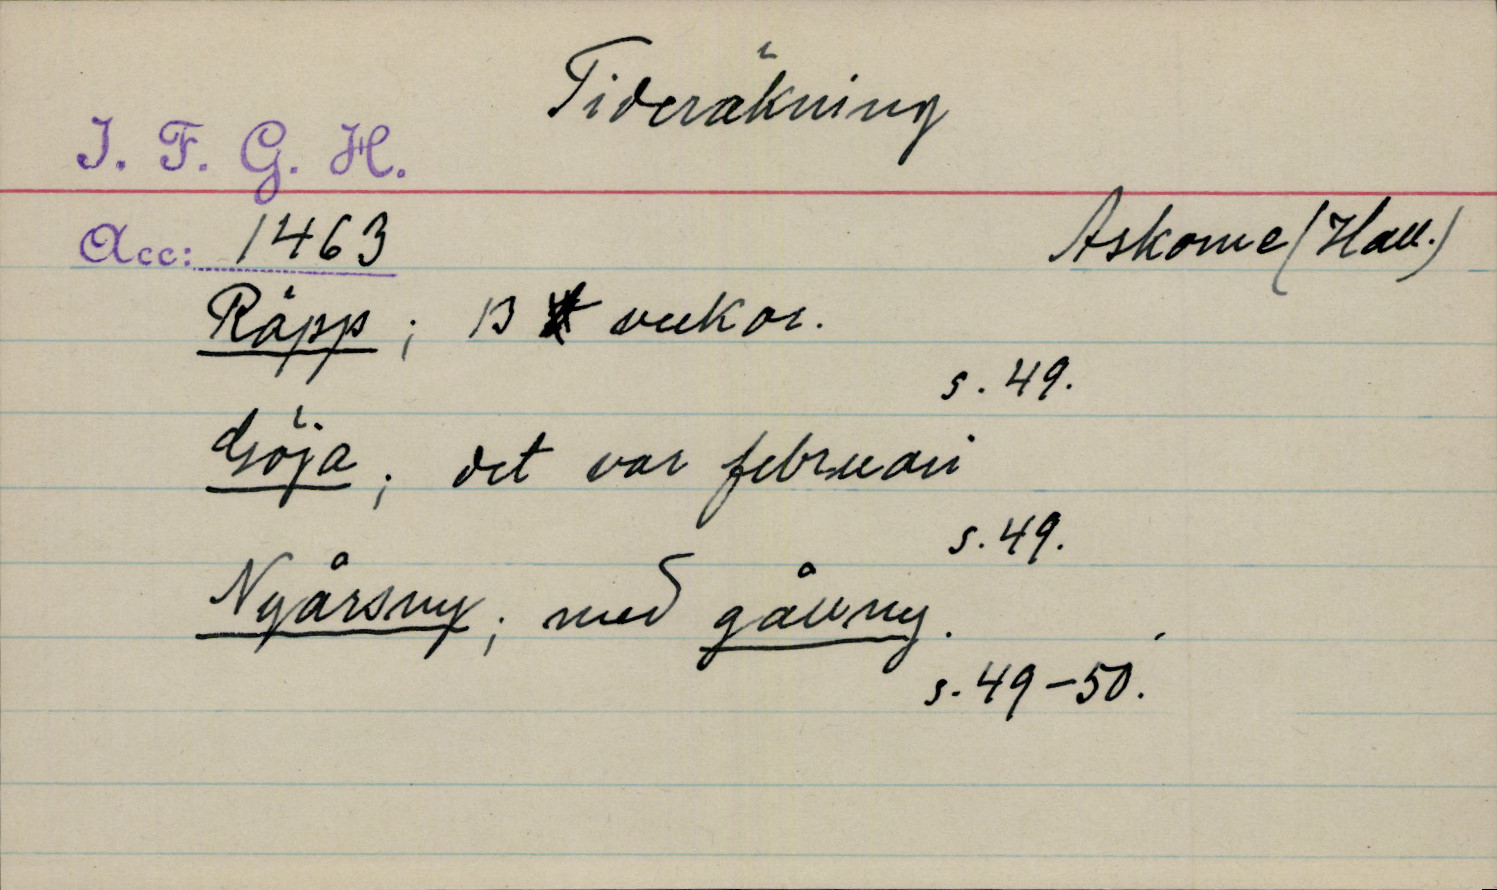 Tideräkning
I. F. G. H.
Acc: 1463
Askome (Hall.)
Räpp; 13 veckor.
s. 49.
Göja; det var februari
s. 49.
Nyårsny; med gåuny.
s. 49-50.